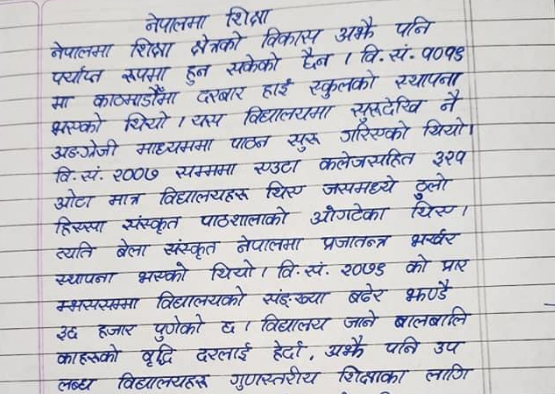 नेपालमा शिक्षा
नेपालमा शिक्षा क्षेत्रको विकास अझै पनि
पर्याप्त रूपमा हुन सकेको छैन । वि.सं. १९१९
मा काठमाडौंमा दरबार हाई स्कुलको स्थापना
भएको थियो । यस विद्यालयमा सुरुदेखि नै
अङग्रेजी माध्यममा पाठन सुरू गरिएको थियो।
वि.सं. २००७ सम्ममा एउटा कलेजसहित ३२१
ओटा मात्र विद्यालयहरू थिए जसमध्ये ठुलो
हिस्सा संस्कृत पाठशालाको ओगटेका थिए।
त्यति बेला संस्कृत नेपालमा प्रजातन्त्र भर्खर
स्थापना भएको थियो। वि.सं. २०७९ को प्रार
म्भससम्मा विद्यालयको सङ्ख्या बढेर झण्डै
३६ हजार पुगेको छ । विद्यालय जाने बालबालि
काहरूको वृद्धि दरलाई हेर्दा, अझै पनि उप
लब्ध विद्यालयहरू गुणस्तरीय शिक्षाका लागि